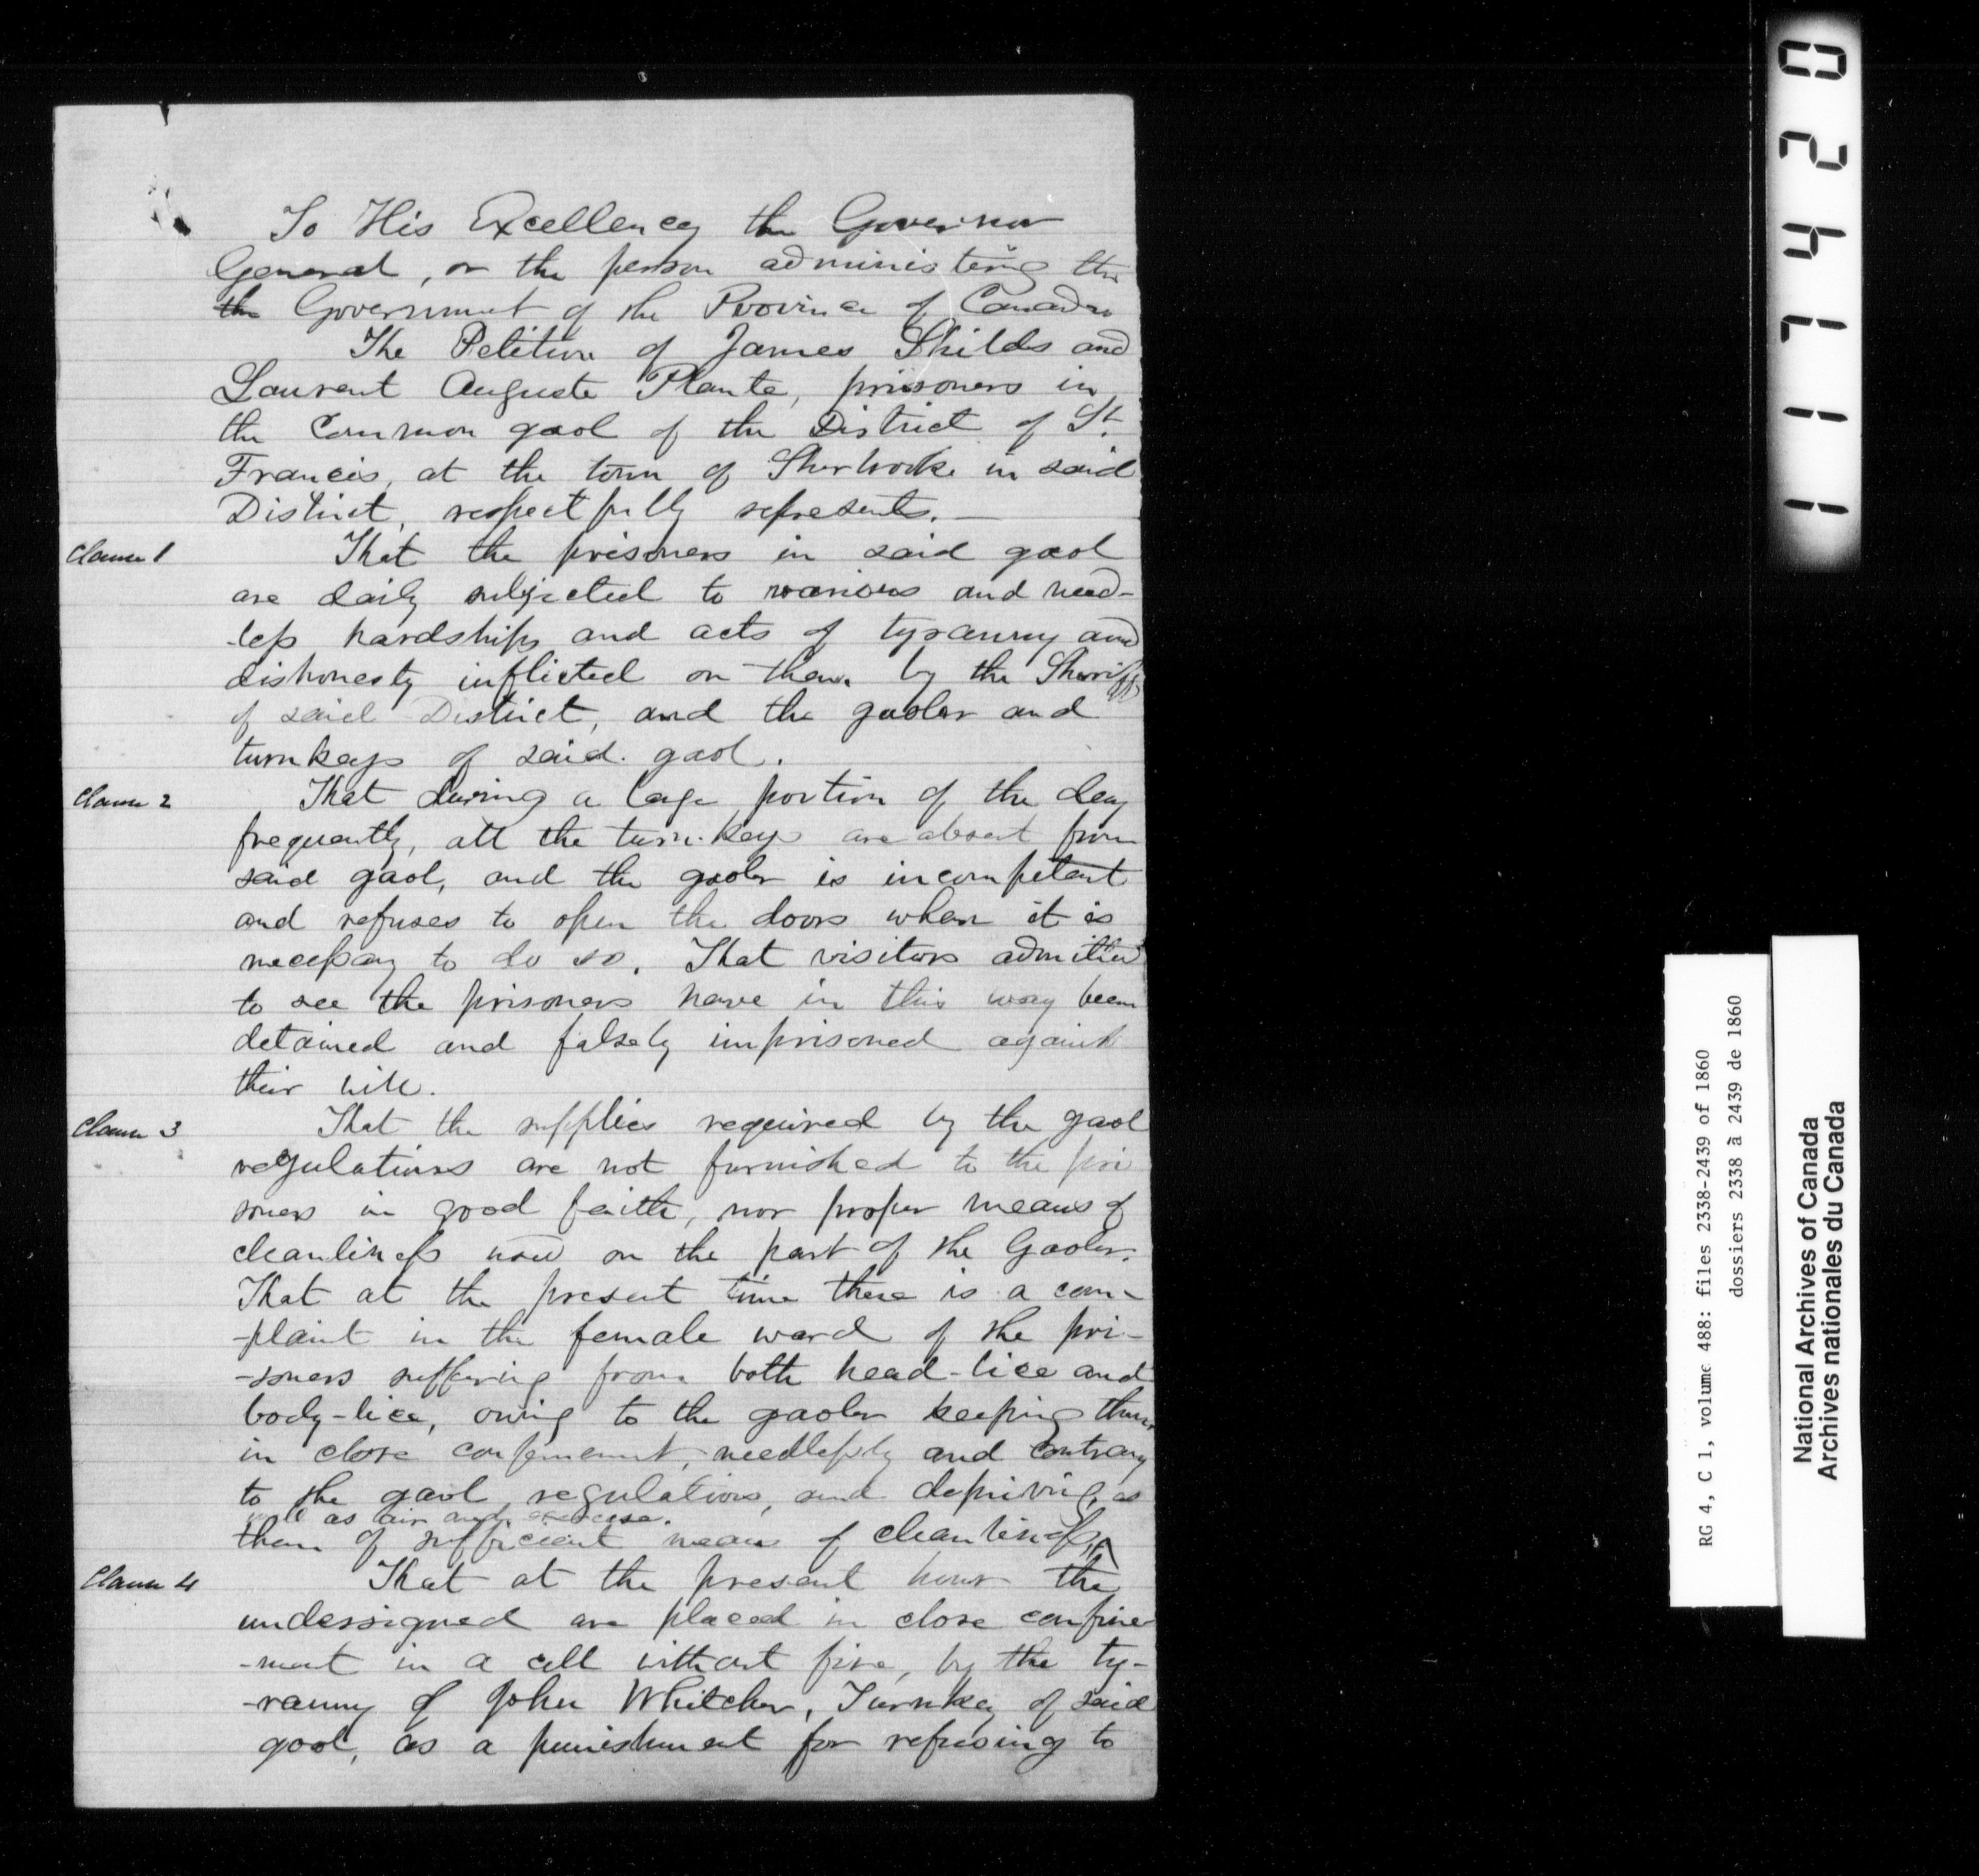 To His Excellency the Governor
General, or the person administering the
the Government of the Province of Canada
The Petition of James Shilds and
Laurent Auguste Plante, prisoners in
the Common gaol of the District of St.
Francis, at the town of Sherbrooke in said
District, respectfully represents.—
Clause 1
That the prisoners in said gaol
are daily subjected to various and need-
-less hardships and acts of tyranny and
dishonesty inflicted on them by the Sheriff
of said District, and the gaoler and
turnkeys of said gaol.
Clause 2
That during a large portion of the day
frequently, all the turn-keys are absent from
said gaol, and the gaoler is incompetent
and refuses to open the doors when it is
necessary to do so. That visitors admitted
to see the prisoners have in this way been
detained and falsely imprisoned against
their will.
Clause 3
That the supplies required by the gaol
regulations are not furnished to the pri
soners in good faith, nor proper means of
cleanliness used on the part of the Gaoler.
That at the present time there is a com-
-plaint in the female ward of the pri-
-soners suffering from both head-lice and
body-lice, owing to the gaoler keeping them
in close confinement, needlessly and contrary
to the gaol regulations, and depriving, as
well as air and exercise.
them of sufficient means of cleanliness,
Clause 4
That at the present hour the
undersigned are placed in close confine-
-ment in a cell without fire, by the ty-
-ranny of John Whitcher, Turnkey of said
gaol, as a punishment for refusing to
117420
RG 4, C 1, volume 488: files 2338-2439 of 1860
dossiers 2338 à 2439 de 1860
National Archives of Canada
Archives nationales du Canada